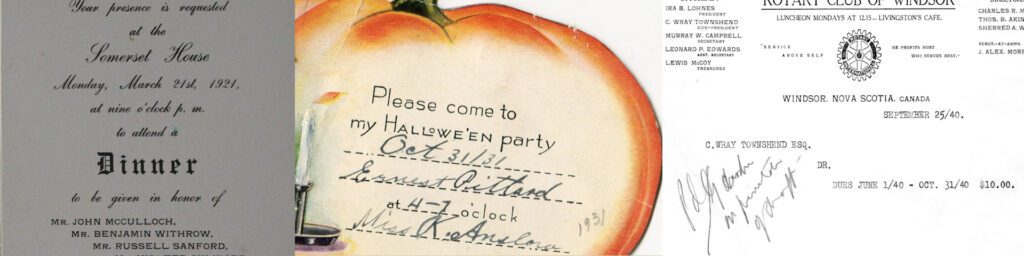 Your presence is requested
at the
Somerset House
Monday, March 21st, 1921,
at nine o'clock p. m.
to attend a
Dinner
to be given in honor of
MR. JOHN MCCULLOCH,
MR. BENJAMIN WITHROW,
MR. RUSSELL SANFORD,
Please come to
my HALLOWE'EN party
Oct 31/31
Ernest Pittard
at 4-7 o'clock
Miss K. Anslow
1931
ROTARY CLUB OF WINDSOR
LUNCHEON MONDAYS AT 12.15 - LIVINGSTON'S CAFE.
IRA B. LOHNES
PRESIDENT
C. WRAY TOWNSHEND
VICE-PRESIDENT
MURRAY W. CAMPBELL
SECRETARY
LEONARD P. EDWARDS
ASST. SECRETARY
LEWIS McCOY
TREASURER
"SERVICE
ABOVE SELF
HE PROFITS MOST
WHO SERVES BEST."
CHARLES R. M
THOS. B. AKIN
SHERRED A. W
SERGT.-AT-ARMS
J. ALEX. MORR
WINDSOR, NOVA SCOTIA, CANADA
SEPTEMBER 25/40.
C. WRAY TOWNSHEND ESQ.
DR.
DUES JUNE 1/40 - OCT. 31/40 $10.00.